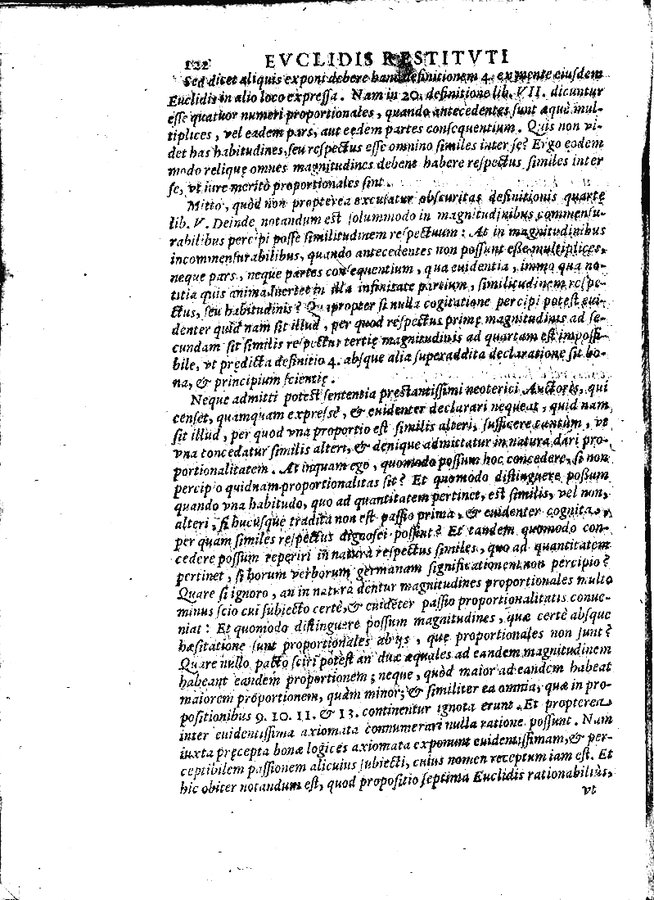 122 EVCLIDIS RESTITVTI
Sed dicet aliquis exponi debere hanc definitionem 4. ex mente eiusdem
Euclidis in alio loco expressa. Nam in 20. definitione lib. VII. dicuntur
esse quatuor numeri proportionales, quando antecedentes sunt æquè mul-
tiplices, vel eadem pars, aut eædem partes consequentium. Quis non vi-
det has habitudines, seu respectus esse omnino similes inter se? Ergo eodem
modo reliquę omnes magnitudines debent habere respectus similes inter
se, vt iure meritò proportionales sint.
Mitto, quòd non propterea excusatur obscuritas definitionis quartę
lib. V. Deinde notandum est solummodo in magnitudinibus commensu-
rabilibus percipi posse similitudinem respectuum: At in magnitudinibus
incommensurabilibus, quando antecedentes non possunt esse multiplices,
neque pars, neque partes consequentium, qua euidentia, immo qua no-
titia quis animaduertet in illa infinitate partium, similitudinem respe-
ctus, seu habitudinis? Quapropter si nulla cogitatione percipi potest eui-
denter quid nam sit illud, per quod respectus primę magnitudinis ad se-
cundam sit similis respectui tertię magnitudinis ad quartam est impossi-
bile, vt prędicta definitio 4. absque alia superaddita declaratione sit bo-
na, & principium scientię.
Neque admitti potest sententia pręstantissimi neoterici Auctoris, qui
censet, quamquam expresse, & euidenter declarari nequeat, quid nam
sit illud, per quod vna proportio est similis alteri, sufficere tantum, vt
vna concedatur similis alteri, & denique admittatur in natura dari pro-
portionalitatem. At inquam ego, quomodo possum hoc concedere, si non
percipio quidnam proportionalitas sit? Et quomodo distinguere possum
quando vna habitudo, quo ad quantitatem pertinet, est similis, vel non,
alteri, si hucusque tradita non est passio prima, & euidenter cognita,
per quam similes respectus dignosci possint? Et tandem quomodo con-
cedere possum reperiri in natura respectus similes, quo ad quantitatem
pertinet, si horum verborum germanam significationem non percipio?
Quare si ignoro, an in natura dentur magnitudines proportionales multo
minus scio cui subiecto certè, & euidēter passio proportionalitatis conue-
niat: Et quomodo distinguere possum magnitudines, quæ certè absque
hæsitatione sunt proportionales ab ijs, quę proportionales non sunt?
Quare nullo pacto sciri potest an duæ æquales ad eandem magnitudinem
habeant eandem proportionem; neque, quòd maior ad eandem habeat
maiorem proportionem, quàm minor; & similiter ea omnia, quæ in pro-
positionibus 9. 10. 11. & 13. continentur ignota erunt. Et propterea
inter euidentissima axiomata connumerari nulla ratione possunt. Nam
iuxta pręcepta bonæ logices axiomata exponunt euidentissimam, & per-
ceptibilem passionem alicuius subiecti, cuius nomen receptum iam est. Et
hic obiter notandum est, quod propositio septima Euclidis rationabilius,
vt